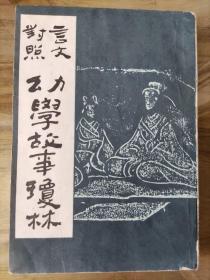 言文
對照
幼學故事瓊林